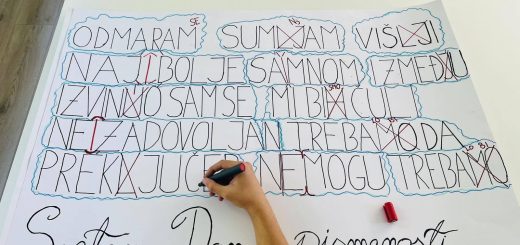 ODMARAM SE SUMNJAM NJ VIŠLJI
NAJIBOLJE SAMNOM IZMEĐU
IZVINUO SAM SE MI BI ČULI SMO
NEIZADOVOLJAN TREBAMO DA LO BI
PREKAJUČE NEMOGU TREBAMO LO BI
Svetski Dan pismenosti